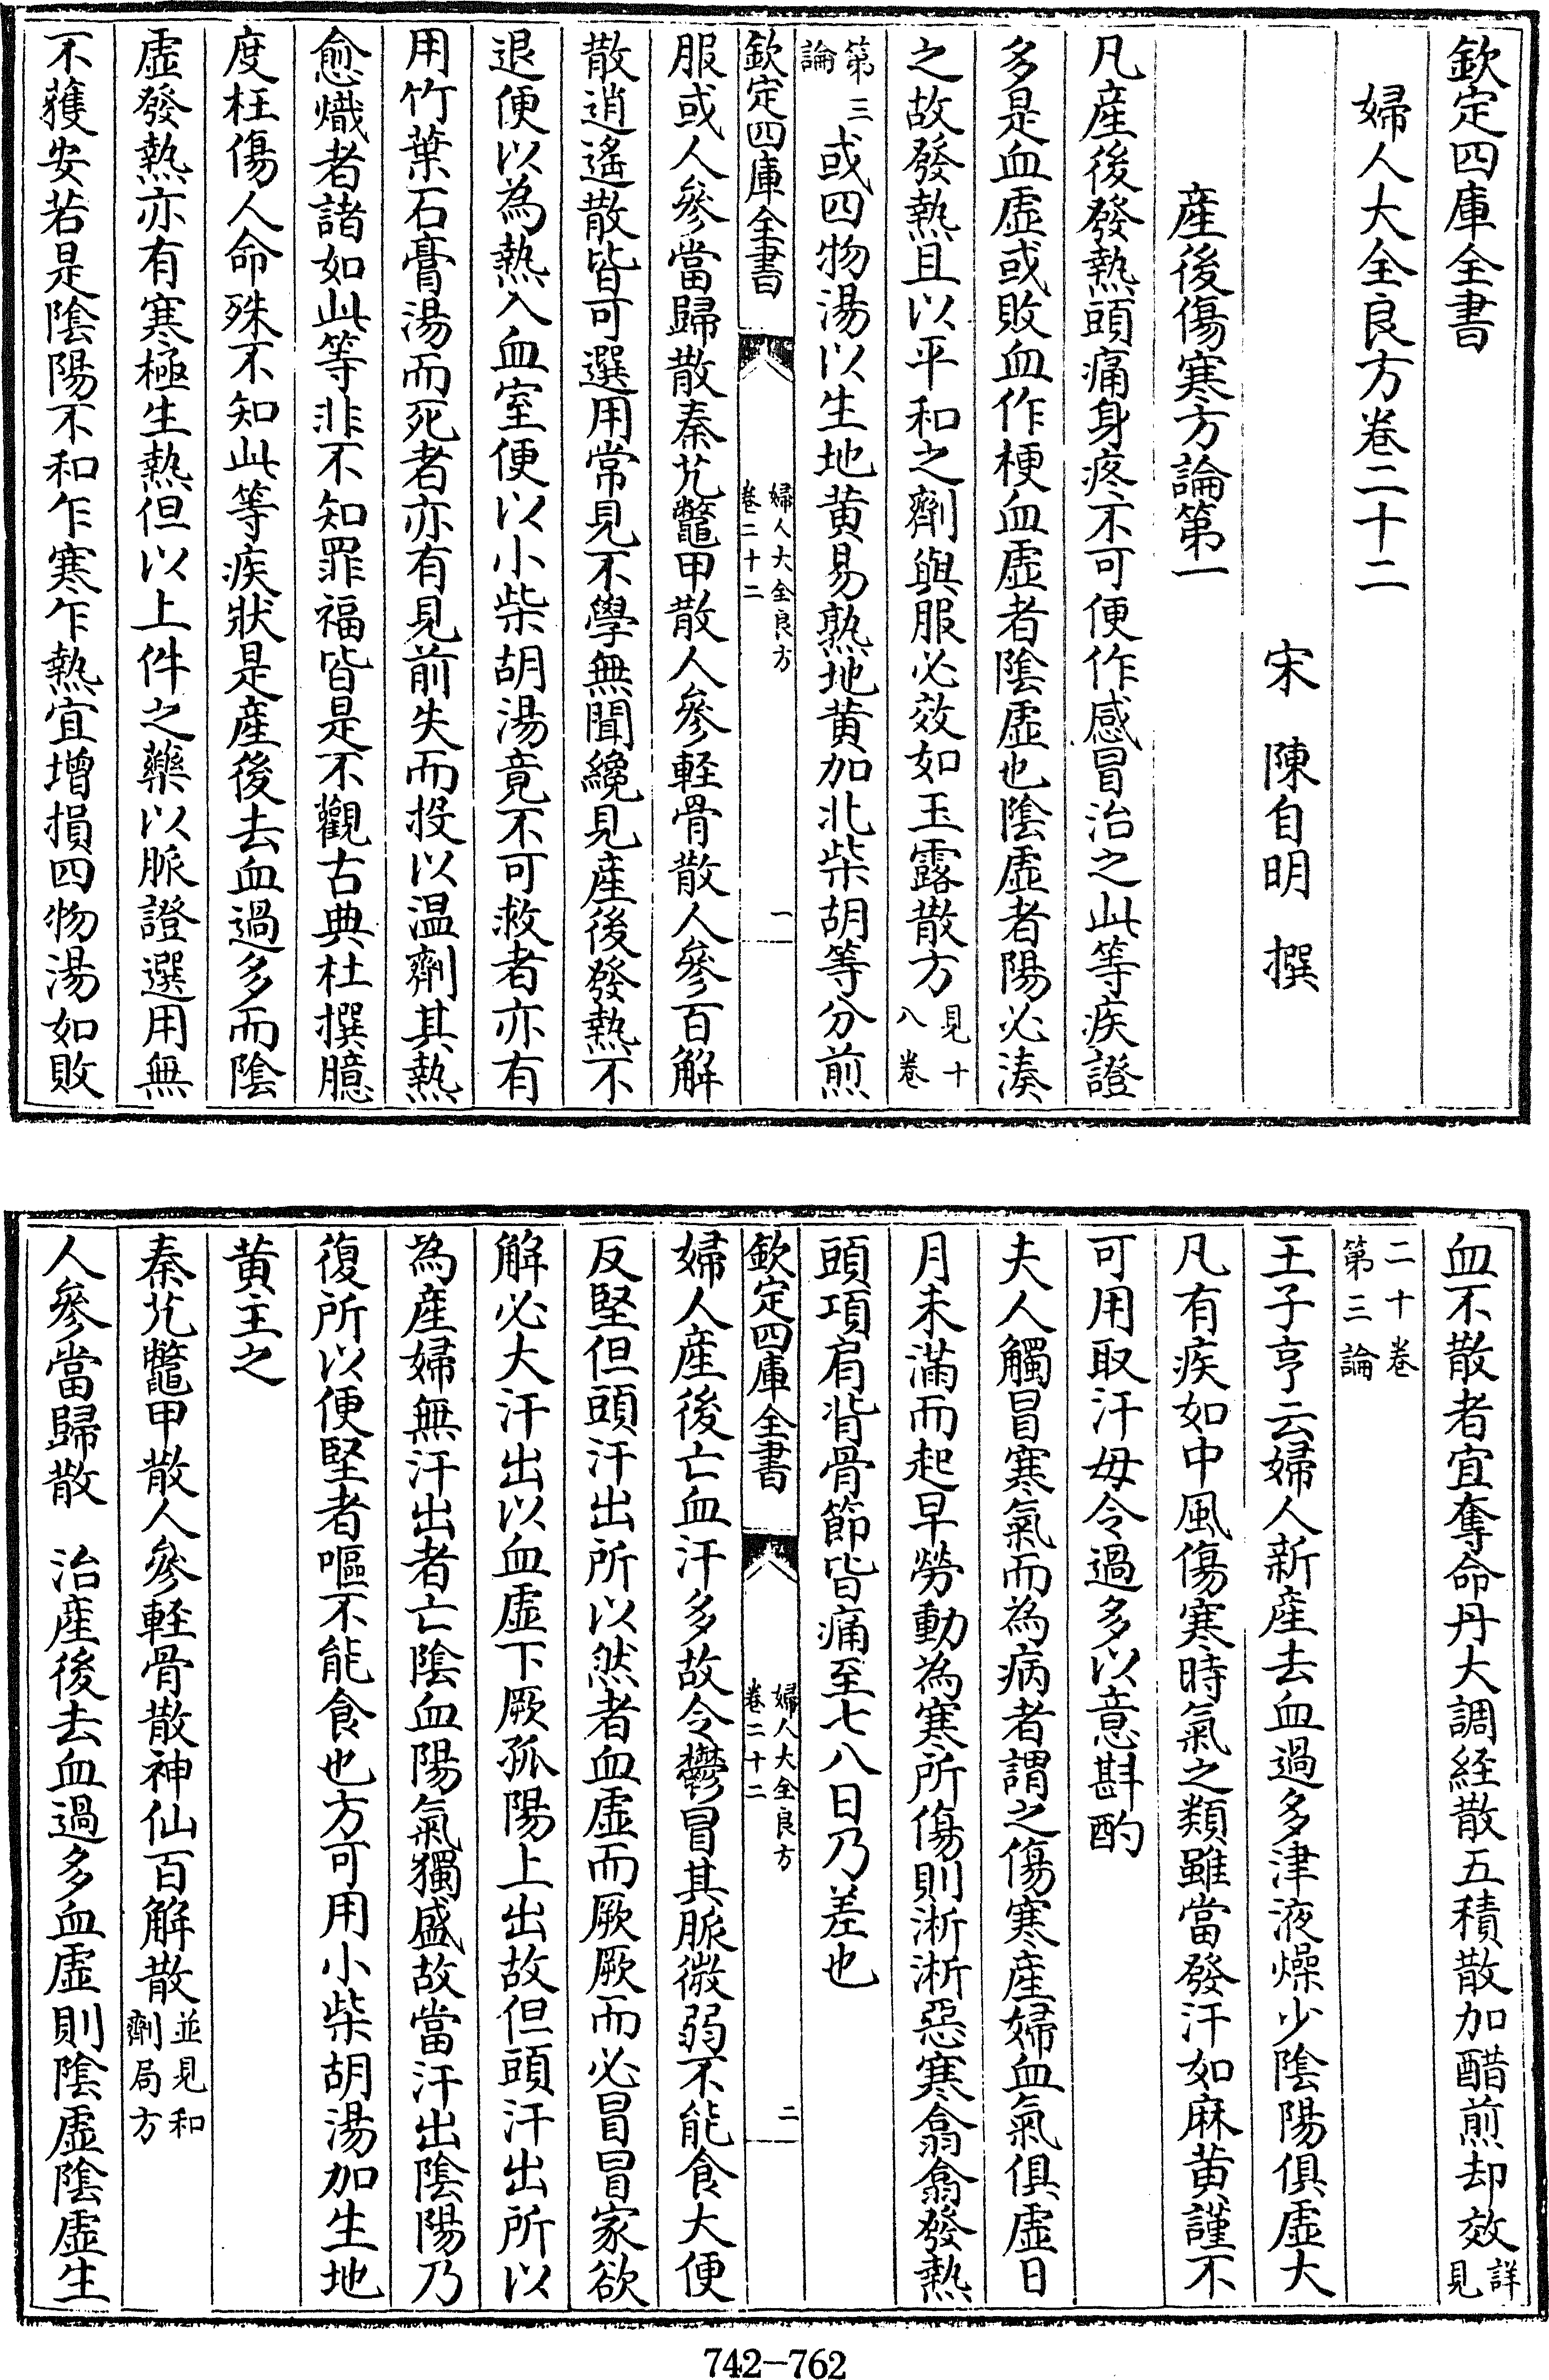 欽定四庫全書
婦人大全良方卷二十二
宋　陳自明　撰
産後傷寒方論第一
凡産後發熱頭痛身疼不可便作感冒治之此等疾證
多是血虛或敗血作梗血虛者陰虛也陰虛者陽必湊
之故發熱且以平和之劑與服必效如玉露散方見十八卷
第三論或四物湯以生地黄易熟地黄加北柴胡等分煎
欽定四庫全書　婦人大全良方卷二十二　一
服或人參當歸散秦艽鼈甲散人參輕骨散人參百解
散逍遙散皆可選用常見不學無聞纔見産後發熱不
退便以為熱入血室便以小柴胡湯竟不可救者亦有
用竹葉石膏湯而死者亦有見前失而投以温劑其熱
愈熾者諸如此等非不知罪福皆是不觀古典杜撰臆
度枉傷人命殊不知此等疾狀是産後去血過多而陰
虛發熱亦有寒極生熱但以上件之藥以脈證選用無
不獲安若是陰陽不和乍寒乍熱宜增損四物湯如敗
血不散者宜奪命丹大調經散五積散加醋煎却效詳見
二十卷第三論
王子亨云婦人新産去血過多津液燥少陰陽俱虛大
凡有疾如中風傷寒時氣之類雖當發汗如麻黄謹不
可用取汗毋令過多以意斟酌
夫人觸冒寒氣而為病者謂之傷寒産婦血氣俱虛日
月未滿而起早勞動為寒所傷則淅淅惡寒翕翕發熱
頭項肩背骨節皆痛至七八日乃差也
欽定四庫全書　婦人大全良方卷二十二　二
婦人産後亡血汗多故令鬱冒其脈微弱不能食大便
反堅但頭汗出所以然者血虛而厥厥而必冒冒家欲
解必大汗出以血虛下厥孤陽上出故但頭汗出所以
為産婦無汗出者亡陰血陽氣獨盛故當汗出陰陽乃
復所以便堅者嘔不能食也方可用小柴胡湯加生地
黄主之
秦艽鼈甲散人參輕骨散神仙百解散並見和劑局方
人參當歸散　治産後去血過多血虛則陰虛陰虛生
742—762